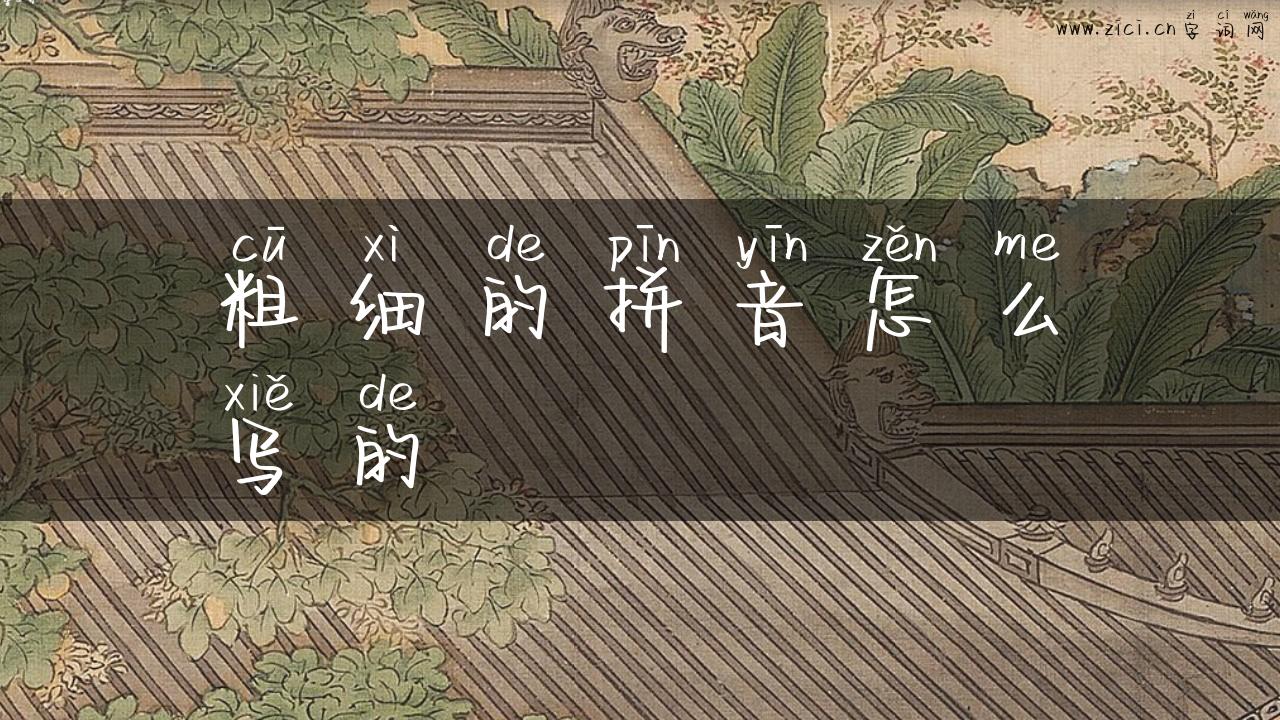 zì cí wǎng
www.zici.cn 字词网
cū xì de pīn yīn zěn me
粗细的拼音怎么
xiě de
写的